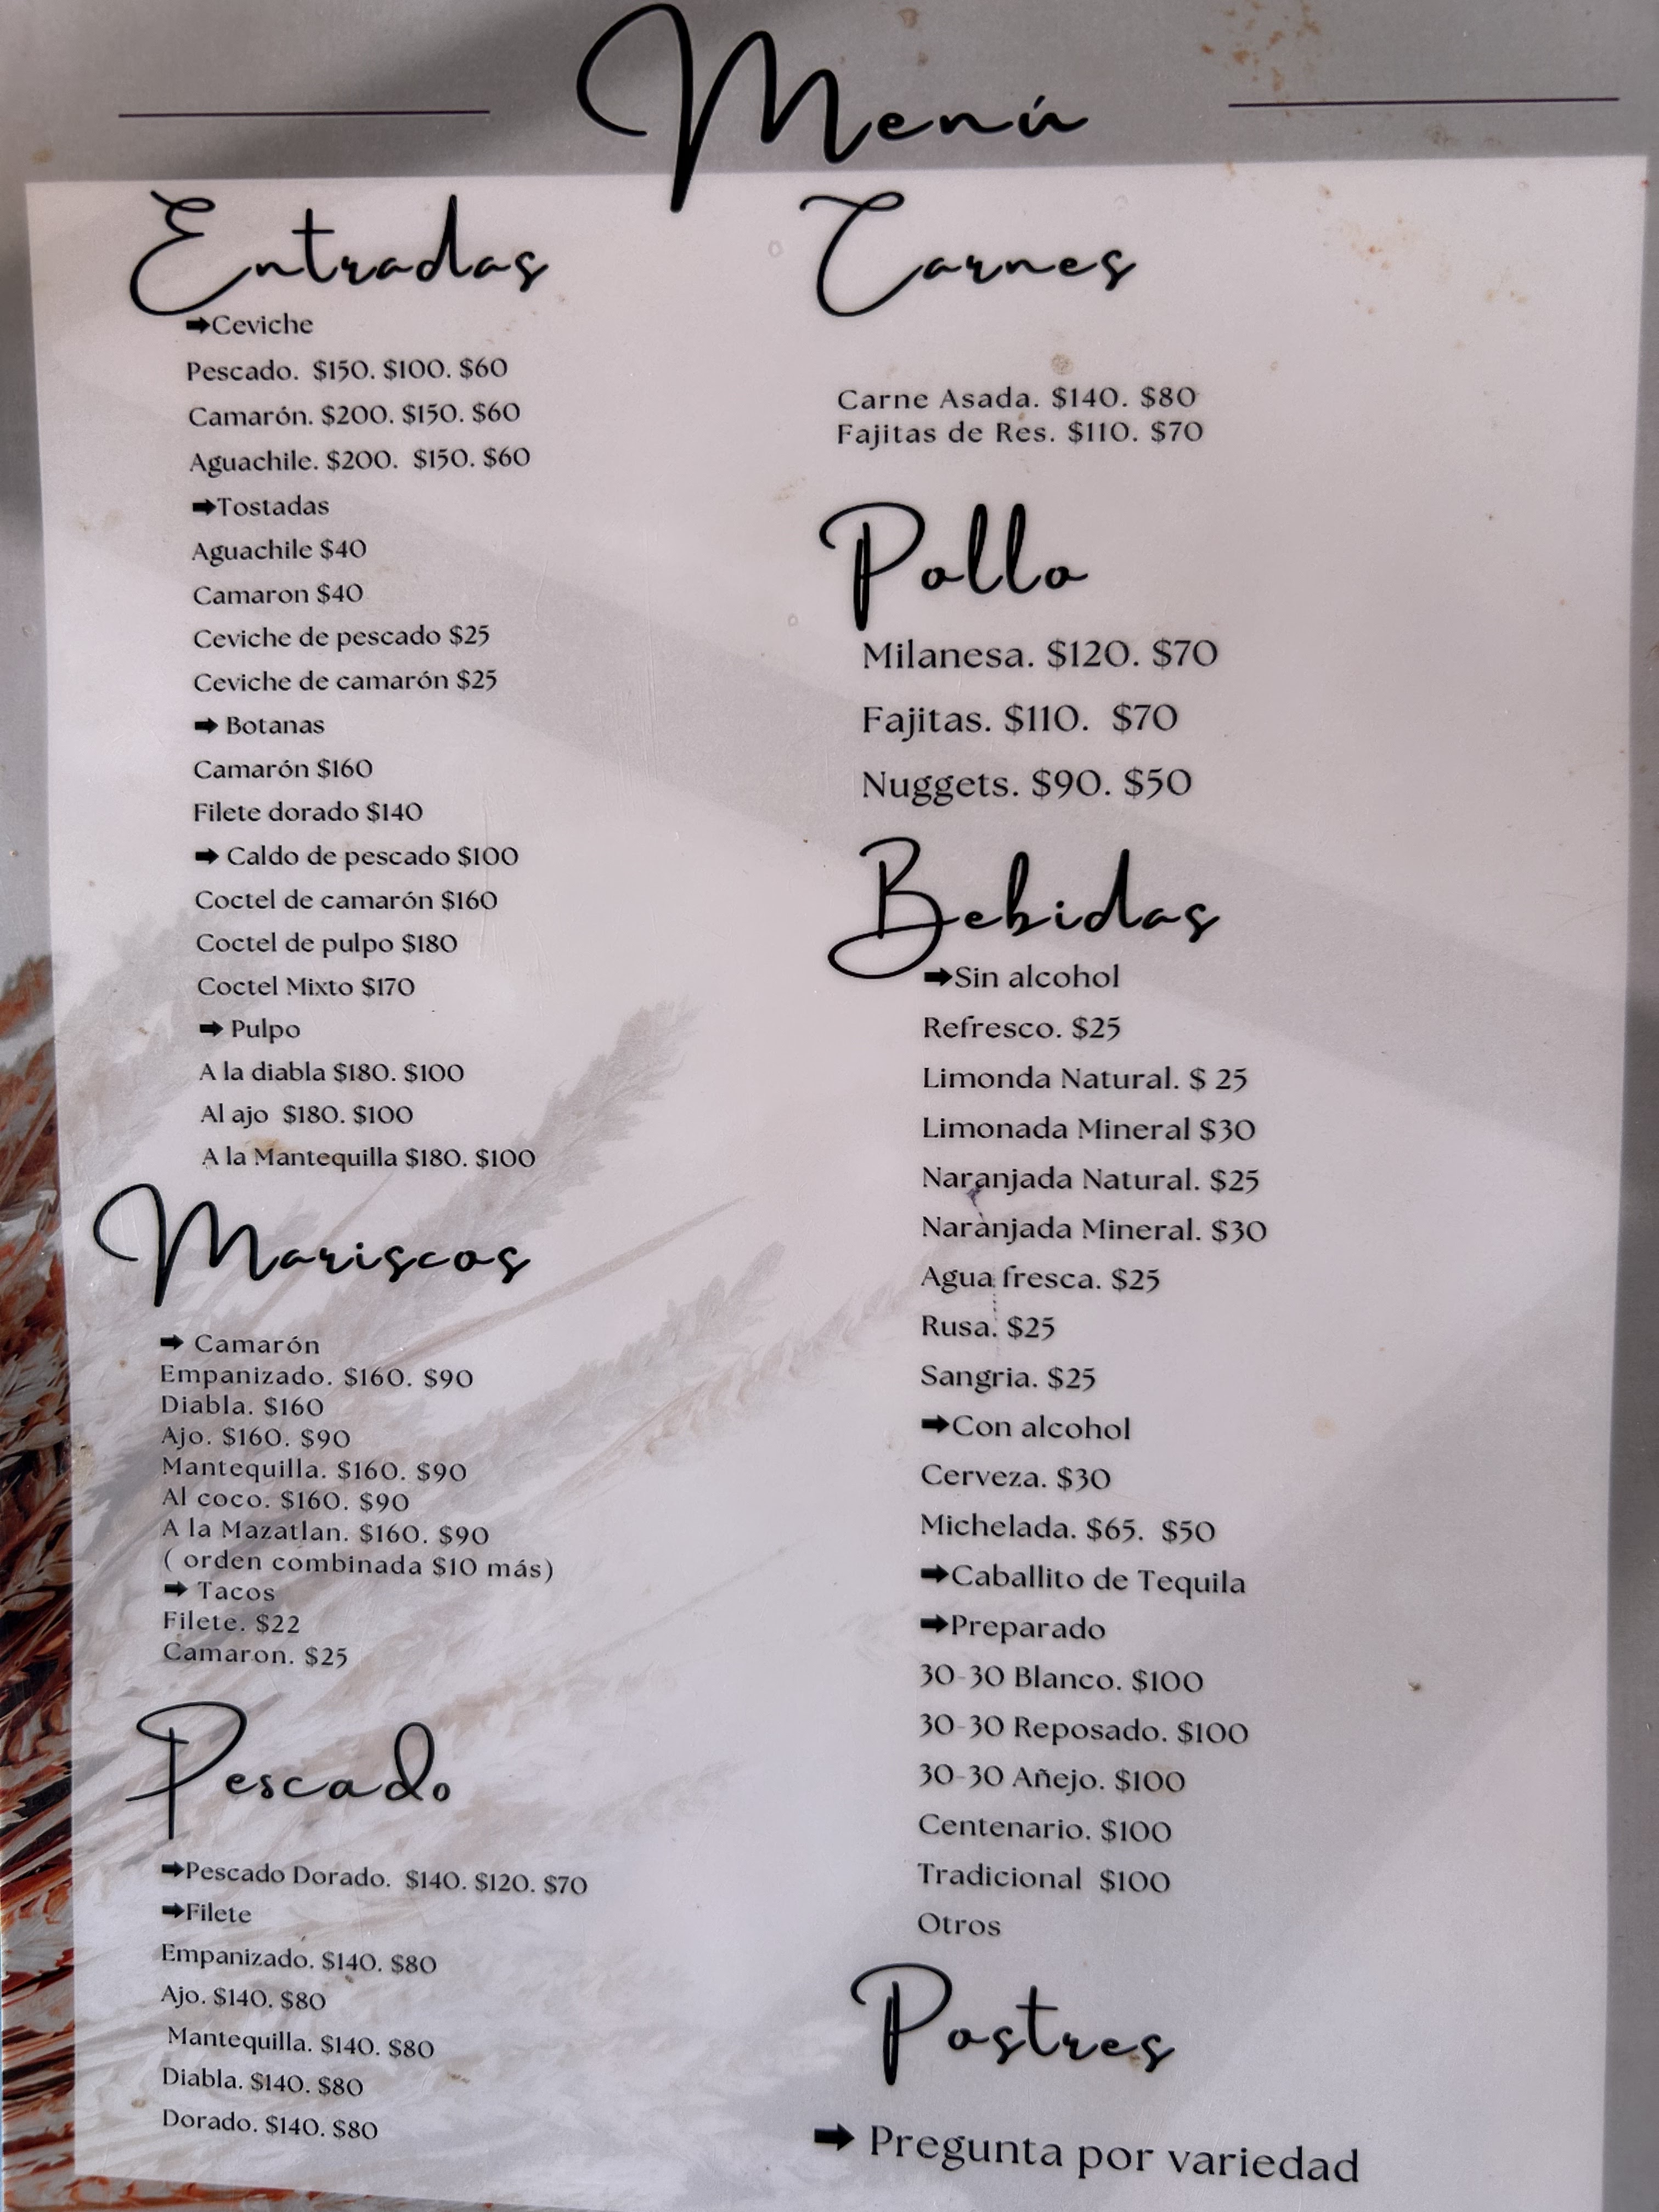 Menú
Entradas
➡Ceviche
Pescado. $150. $100. $60
Camarón. $200. $150. $60
Aguachile. $200. $150. $60
➡Tostadas
Aguachile $40
Camaron $40
Ceviche de pescado $25
Ceviche de camarón $25
➡ Botanas
Camarón $160
Filete dorado $140
➡ Caldo de pescado $100
Coctel de camarón $160
Coctel de pulpo $180
Coctel Mixto $170
➡ Pulpo
A la diabla $180. $100
Al ajo $180. $100
A la Mantequilla $180. $100
Mariscos
➡ Camarón
Empanizado. $160. $90
Diabla. $160
Ajo. $160. $90
Mantequilla. $160. $90
Al coco. $160. $90
A la Mazatlan. $160. $90
( orden combinada $10 más)
➡ Tacos
Filete. $22
Camaron. $25
Pescado
➡Pescado Dorado. $140. $120. $70
➡Filete
Empanizado. $140. $80
Ajo. $140. $80
Mantequilla. $140. $80
Diabla. $140. $80
Dorado. $140. $80
Carnes
Carne Asada. $140. $80
Fajitas de Res. $110. $70
Pollo
Milanesa. $120. $70
Fajitas. $110. $70
Nuggets. $90. $50
Bebidas
➡Sin alcohol
Refresco. $25
Limonda Natural. $ 25
Limonada Mineral $30
Naranjada Natural. $25
Naranjada Mineral. $30
Agua fresca. $25
Rusa. $25
Sangria. $25
➡Con alcohol
Cerveza. $30
Michelada. $65. $50
➡Caballito de Tequila
➡Preparado
30-30 Blanco. $100
30-30 Reposado. $100
30-30 Añejo. $100
Centenario. $100
Tradicional $100
Otros
Postres
➡ Pregunta por variedad